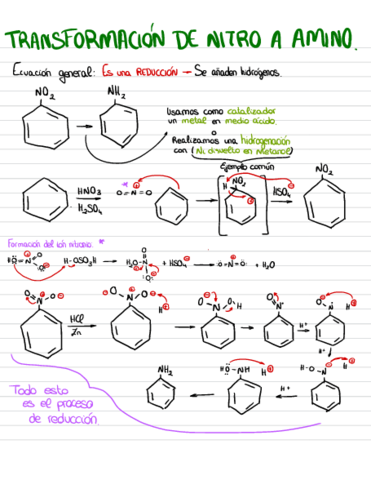 TRANSFORMACIÓN DE NITRO A AMINO.
Ecuación general: Es una REDUCCIÓN → Se añaden hidrógenos.
NO2
NH2
Usamos como catalizador
un metal en medio ácido.
o
Realizamos una hidrogenación
con (Ni disuelto en Metanol)
Ejemplo común
HNO3
H2SO4
O=N=O
H
NO2
HSO4
NO2
Formación del ión nitronio. *
HO-N=O
H-OSO3H
H2O-N=O
+ HSO4
O=N=O
+ H2O
HCl
Zn
H
H+
H-O-N
H
H+
HO-NH
H
NH2
Todo esto
es el proceso
de reducción.